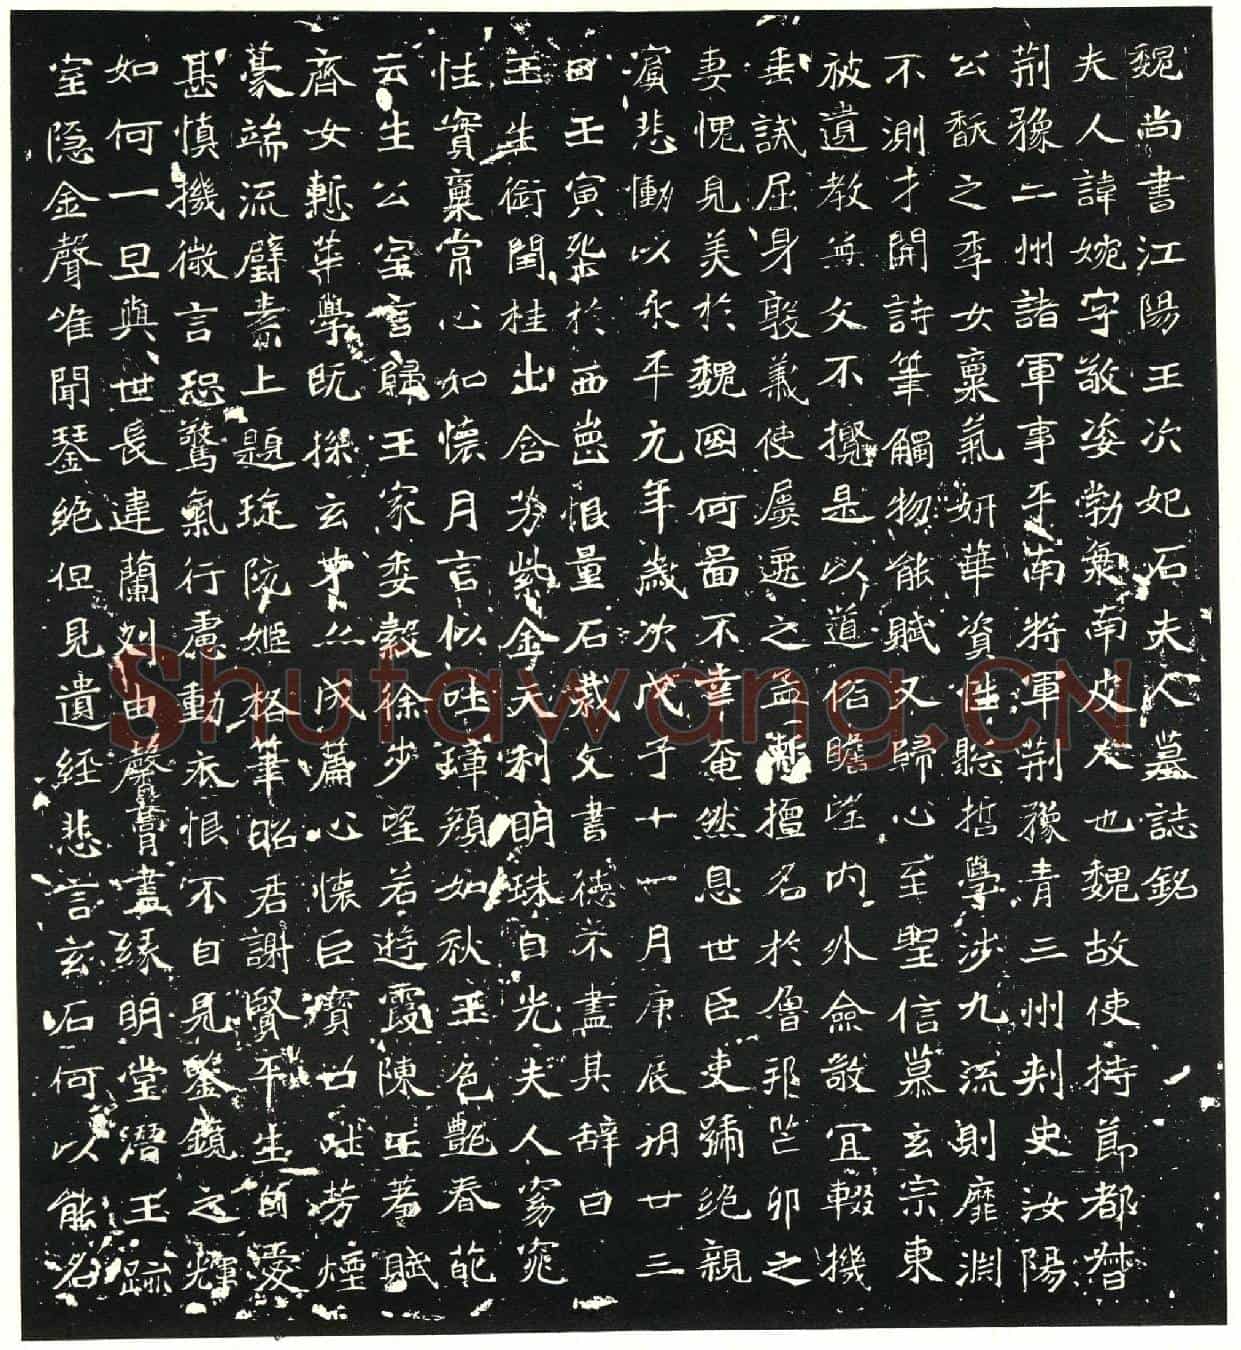 魏尚書江陽王次妃石夫人墓誌銘
夫人諱婉字敬姿勃海南皮人也魏故使持節都督
荊豫二州諸軍事平南將軍荊豫青三州刾史汝陽
公馛之季女稟氣妍華資性聡哲學涉九流則靡淵
不測才關詩筆觸物能賦又歸心至聖信慕玄宗東
被遺教無文不攬是以道俗瞻望內外僉敬宜輟機
垂誡屈身敦義使屢遷之孟蹔擅名於魯邦芒卯之
妻愧見美於魏國何啚不幸奄然息世臣吏號絕親
賓悲慟以永平元年歲次戊子十一月庚辰朔廿三
日壬寅塟於西崗恨量石裁文書德不盡其辭曰
玉生銜閏桂出含芳紫金天利明珠自光夫人窈窕
性實稟常心如懷月言似吐璋顏如秋玉色艶春葩
云生公室言歸王家委縠徐步望若遊霞陳王羞賦
齊女慙華學既探玄才亦成萹心懷巨寶口吐芳煙
豪端流璧素上題琁阮姬格筆昭君謝賢平生自愛
甚慎機微言恐驚氣行慮動衣恨不自見鑒鏡之輝
如何一旦與世長違蘭刈由馨膏盡緣明堂潛玉跡
室隱金聲唯聞琴絕但見遺經悲言玄石何以能名
Shutawang.CN